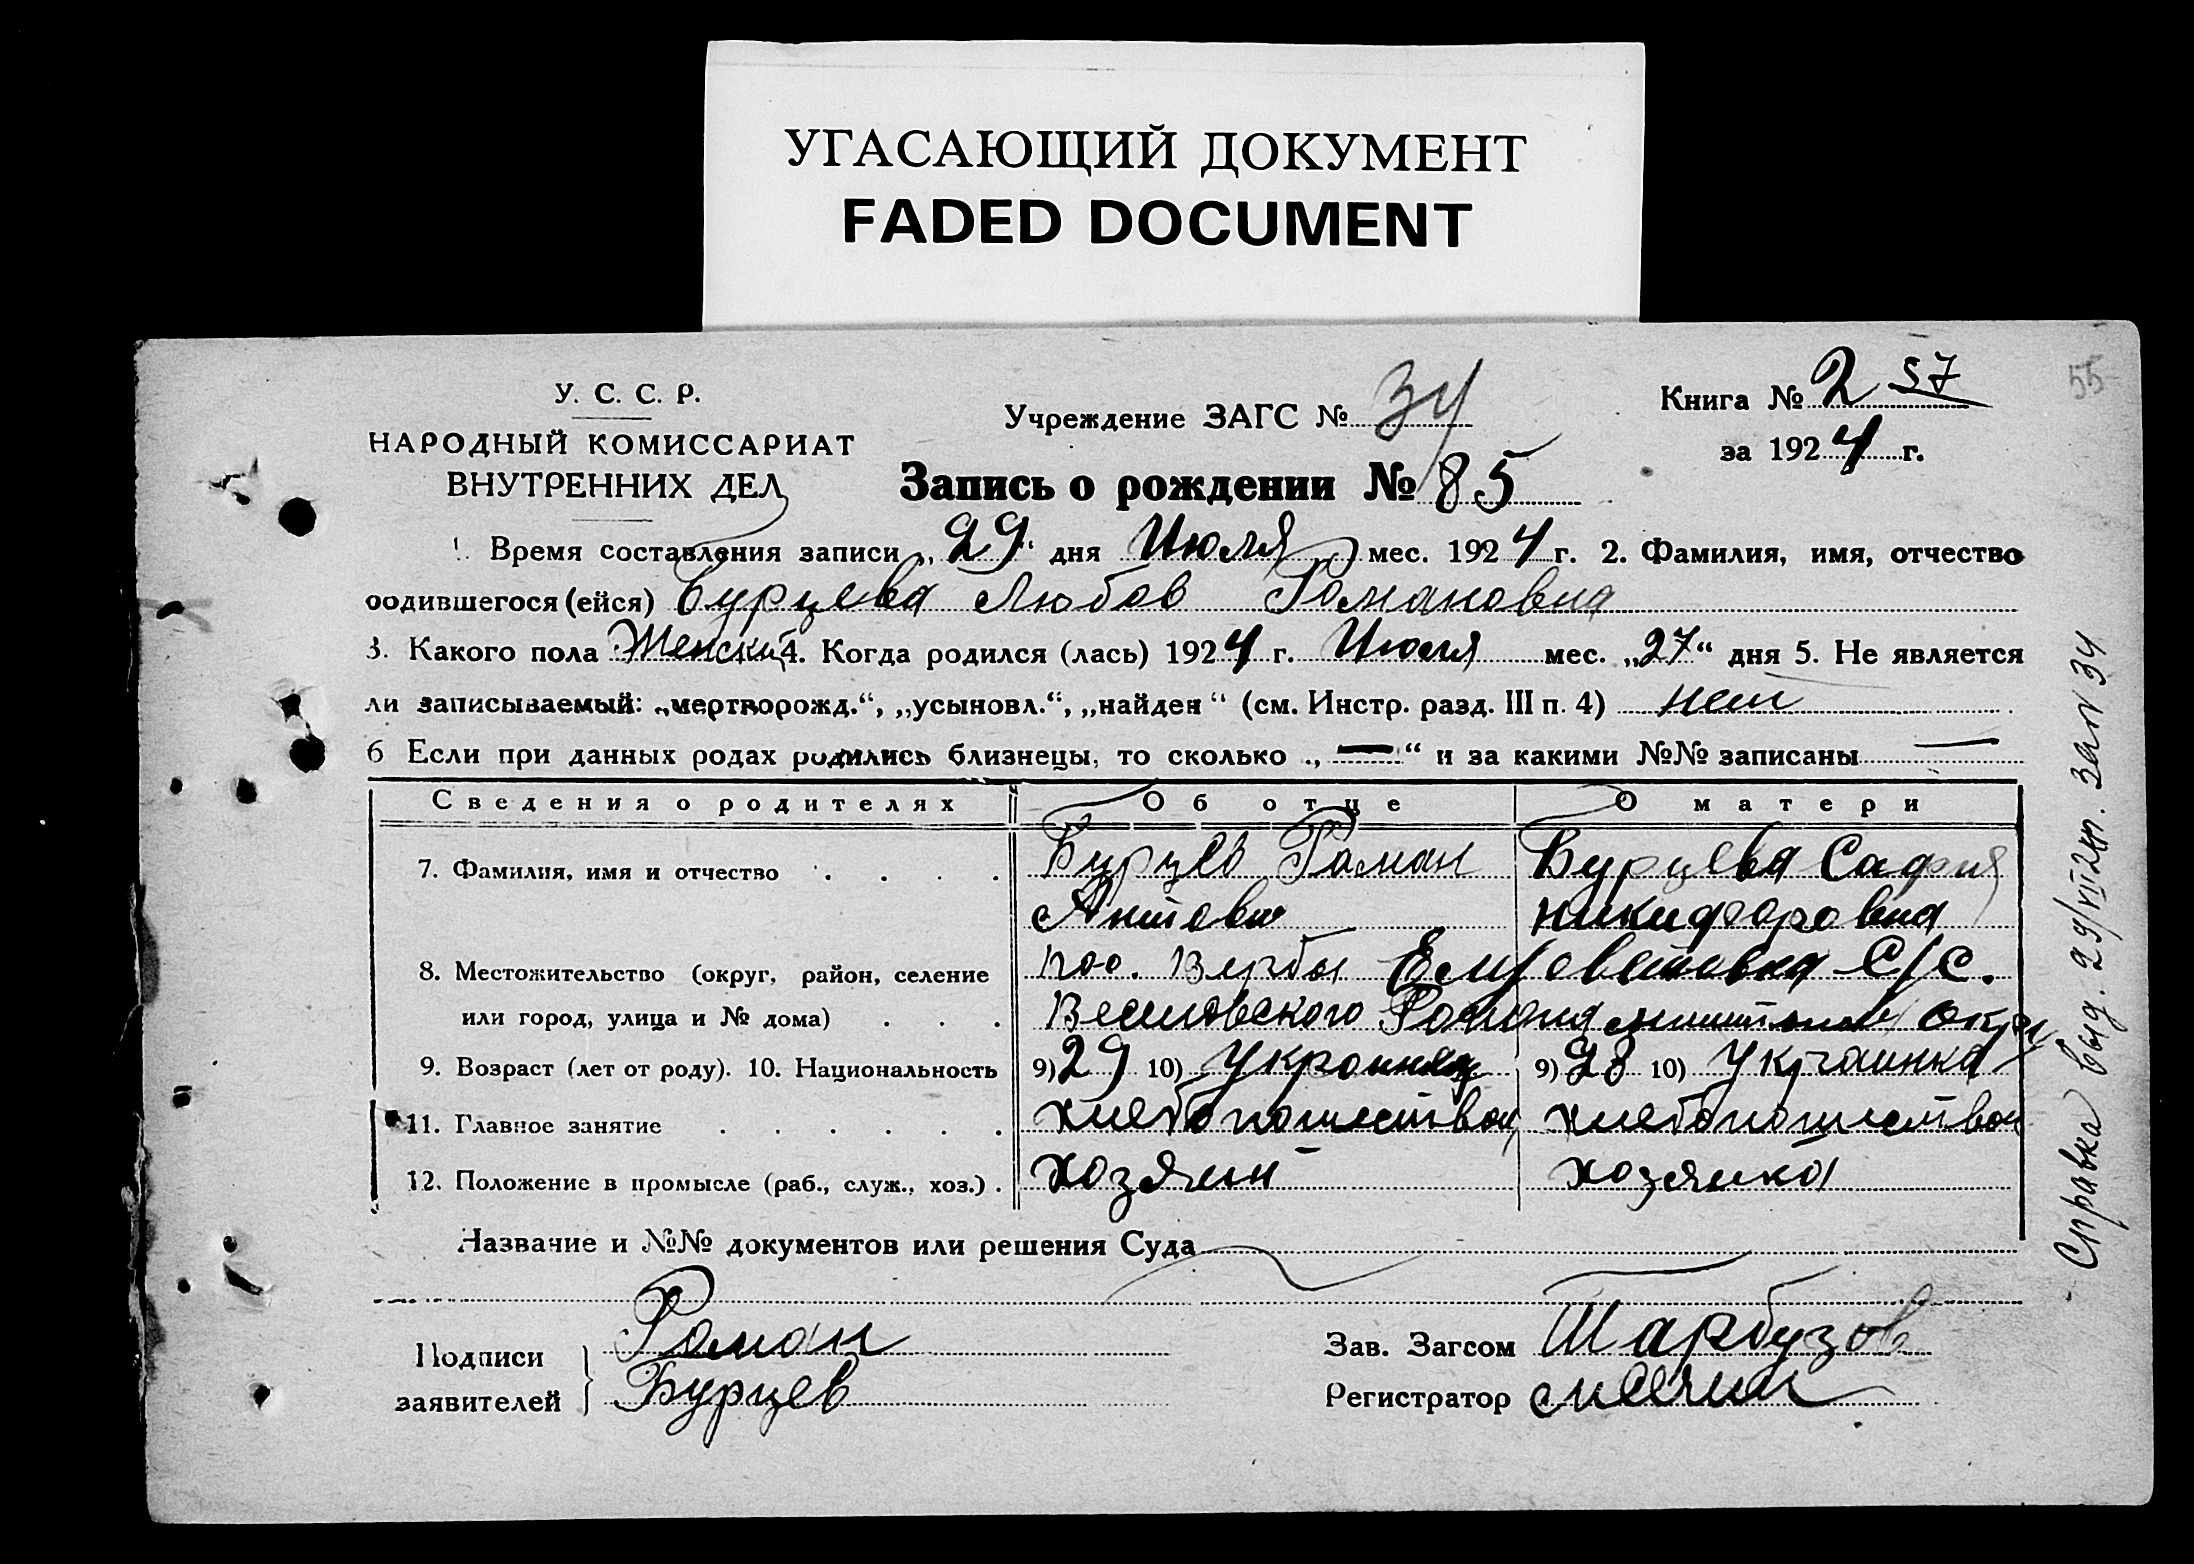 УГАСАЮЩИЙ ДОКУМЕНТ
FADED DOCUMENT
У. С. С. Р.
НАРОДНЫЙ КОМИССАРИАТ
ВНУТРЕННИХ ДЕЛ
Учреждение ЗАГС № 34
Книга № 2 57
55
за 1924 г.
Запись о рождении № 85
1. Время составления записи „29“ дня Июля мес. 1924 г. 2. Фамилия, имя, отчество
родившегося (ейся) Бурцева Любов Романовна
3. Какого пола Женский 4. Когда родился (лась) 1924 г. Июля мес. „27“ дня 5. Не является
ли записываемый: „мертворожд.“, „усыновл.“, „найден“ (см. Инстр. разд. III п. 4) нет
6 Если при данных родах родились близнецы, то сколько „—“ и за какими №№ записаны —
Сведения о родителях Об отце О матери
7. Фамилия, имя и отчество . . . . Бурцев Роман Бурцева Сафия
Никифоровна
8. Местожительство (округ, район, селение пос. Вербы С/С.
или город, улица и № дома) . . . Веселовского Района
9. Возраст (лет от роду). 10. Национальность 9) 29 10) Украинец 9) 28 10) Украинка
11. Главное занятие . . . . . . хлебопашеством хлебопашеством
12. Положение в промысле (раб., служ., хоз.) . хозяин хозяйка
Название и №№ документов или решения Суда
Подписи
заявителей
Роман
Бурцев
Зав. Загсом
Регистратор
Справка выд. 29/VII 24г. за № 34